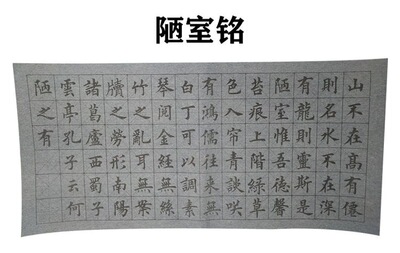 陋室铭
山不在高有僊
則名水不在深
有龍則靈斯是
陋室惟吾德馨
苔痕上階綠草
色入帘青談咲
有鴻儒往來無
白丁可以調素
琴閱金經無絲
竹之亂耳無案
牘之勞形南陽
諸葛廬西蜀子
雲亭孔子云何
陋之有